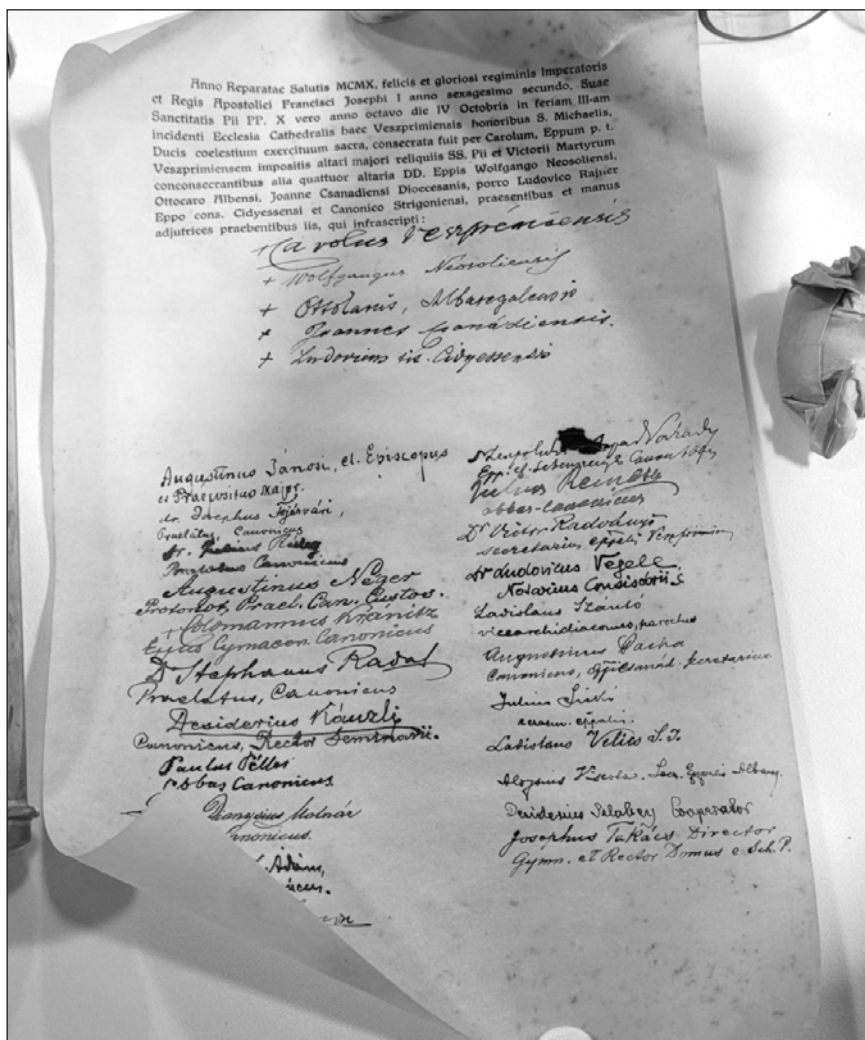 Anno Reparatae Salutis MCMX, felicis et gloriosi regiminis Imperatoris
et Regis Apostolici Francisci Josephi I anno sexagesimo secundo, Suae
Sanctitatis Pii PP. X vero anno octavo die IV Octobris in feriam III-am
incidenti Ecclesia Cathedralis haec Veszprimiensis honoribus S. Michaelis,
Ducis coelestium exercituum sacra, consecrata fuit per Carolum, Eppum p. t.
Veszprimiensem impositis altari majori reliquiis SS. Pii et Victorii Martyrum
conconsecrantibus alia quattuor altaria DD. Eppis Wolfgango Neosoliensi,
Ottocaro Albensi, Joanne Csanadiensi Dioecesanis, porro Ludovico Rajner
Eppo cons. Cidyessensi et Canonico Strigoniensi, praesentibus et manus
adjutrices praebentibus iis, qui infrascripti:
+ Carolus Veszprémiensis
+ Wolfgangus Neosoliensis
+ Ottokarus, Albaregalensis
+ Joannes Csanádiensis.
+ Ludovicus Cidyessensis
Augustinus Jánosi, el. Episcopus
et Praepositus Major.
dr. Josephus Fejérvári,
Praelatus, Canonicus
Dr. Rédey
Praelatus Canonicus
Augustinus Néger
Protonot. Prael. Can. Custos.
+ Colomannus Kránitz
Eppus Cymaeon. Canonicus
Dr Stephanus Rada
Praelatus, Canonicus
Desiderius Káuzli
Canonicus, Rector Seminarii.
Paulus Péller
Abbas Canonicus
Dionysius Molnár
Canonicus.
Ádám,
Arpad Várady
Julius Remete
abbas-canonicus
Dr Victor Radványi
secretarius eppalis
Dr Ludovicus Vegele
Notarius Consistorii
Ladislaus Szántó
vicearchidiaconus, parochus
Augustinus Pacha
Canonicus, secretarius
Julius
Ladislaus Velics S.J.
Aloysius Viscola
Desiderius Cooperator
Josephus Takács Director
Gymn. et Rector Domus e Sch. P.